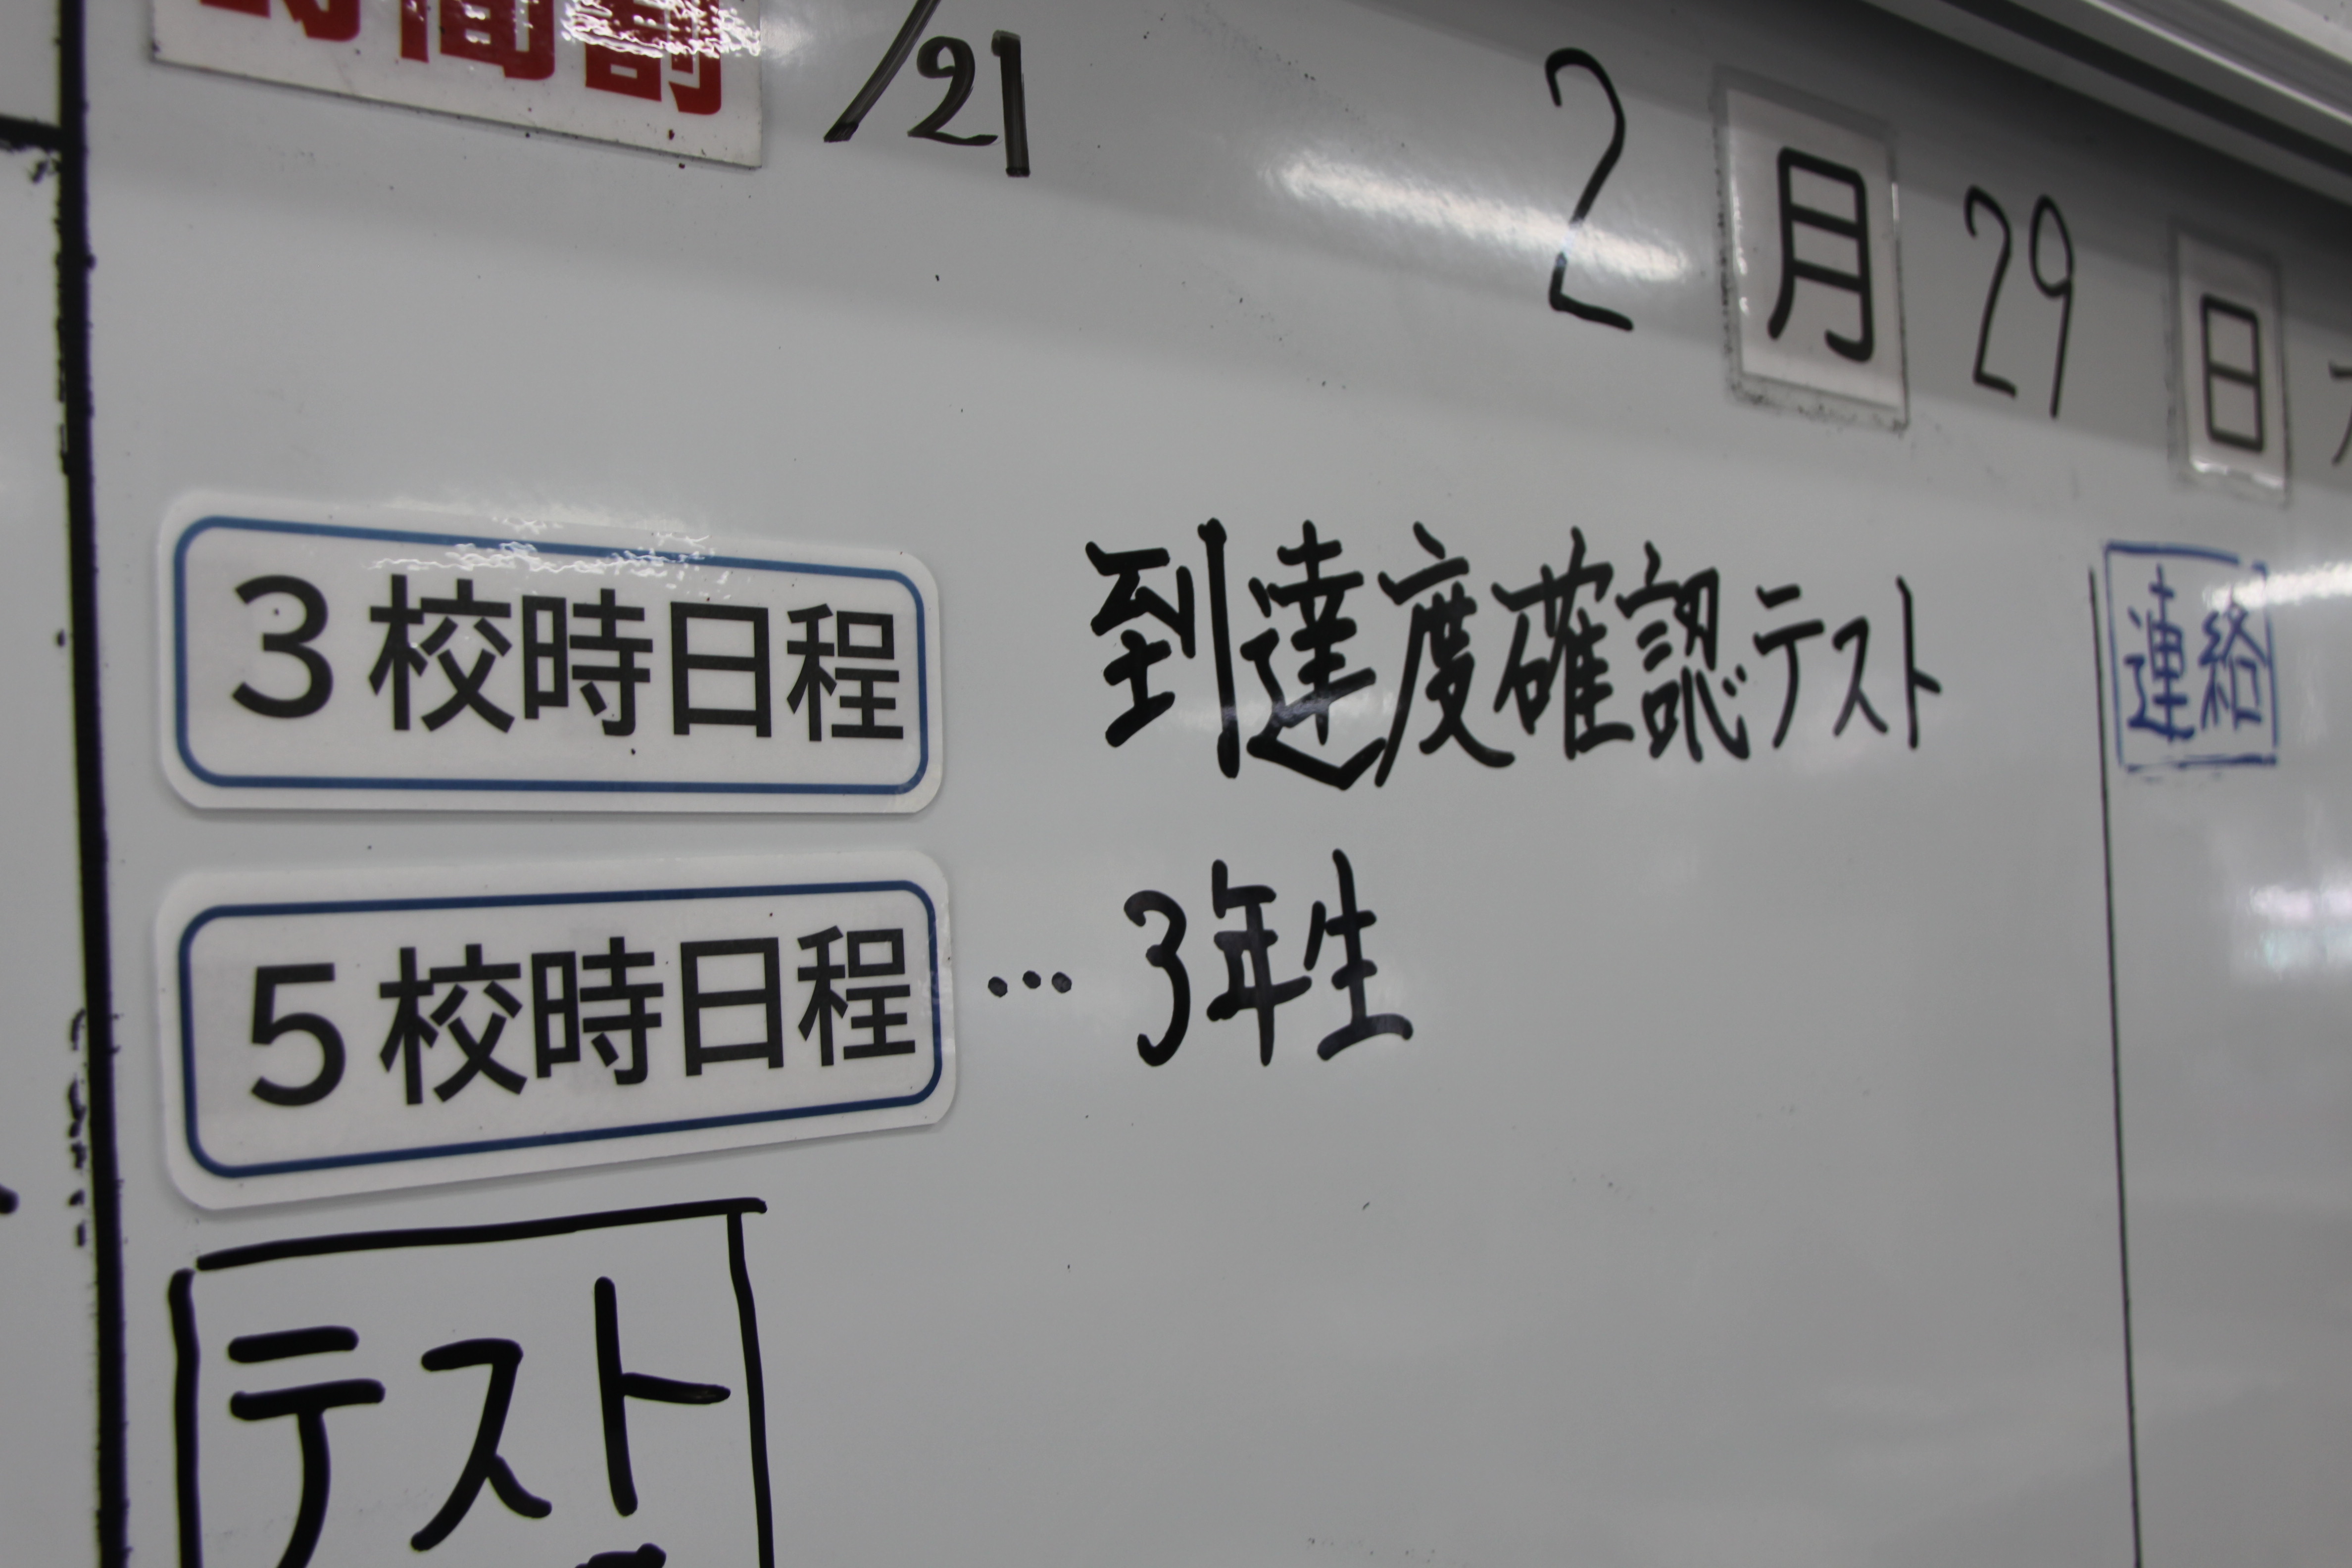 時間割 /21
2月29日
3校時日程 到達度確認テスト
連絡
5校時日程 …3年生
テスト